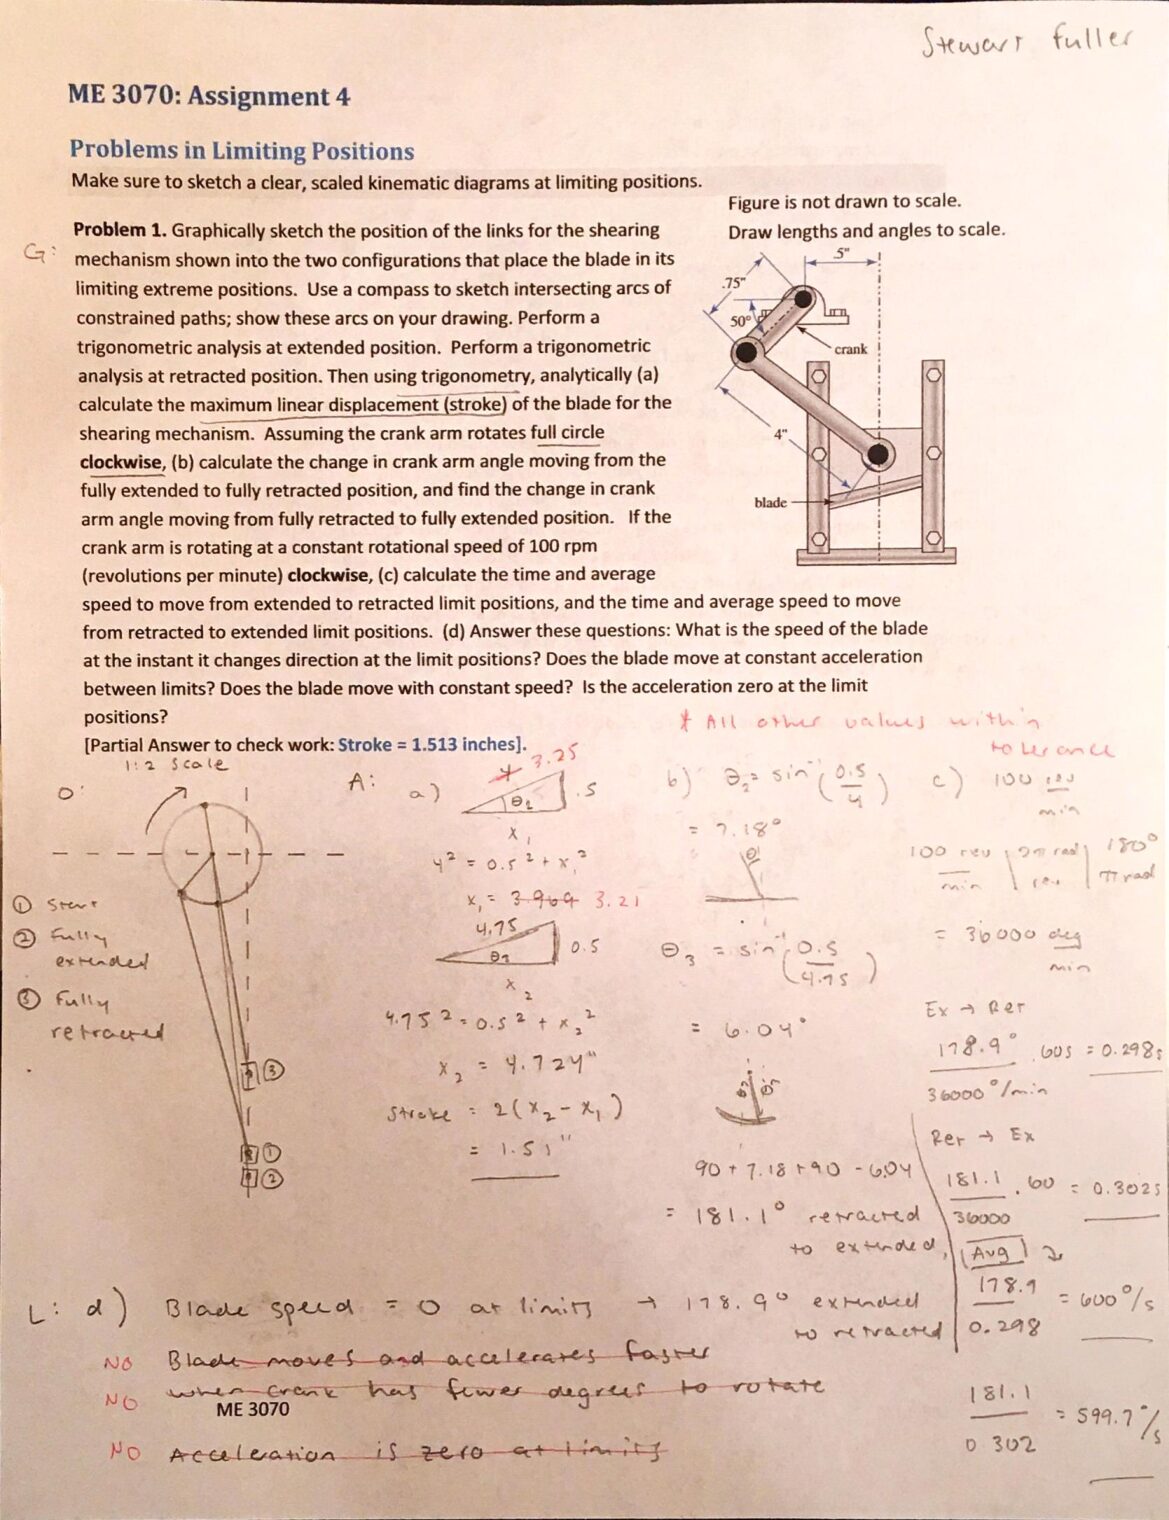 Stewart Fuller
ME 3070: Assignment 4
Problems in Limiting Positions
Make sure to sketch a clear, scaled kinematic diagrams at limiting positions.
Figure is not drawn to scale.
Draw lengths and angles to scale.
G:
Problem 1. Graphically sketch the position of the links for the shearing
mechanism shown into the two configurations that place the blade in its
limiting extreme positions. Use a compass to sketch intersecting arcs of
constrained paths; show these arcs on your drawing. Perform a
trigonometric analysis at extended position. Perform a trigonometric
analysis at retracted position. Then using trigonometry, analytically (a)
calculate the maximum linear displacement (stroke) of the blade for the
shearing mechanism. Assuming the crank arm rotates full circle
clockwise, (b) calculate the change in crank arm angle moving from the
fully extended to fully retracted position, and find the change in crank
arm angle moving from fully retracted to fully extended position. If the
crank arm is rotating at a constant rotational speed of 100 rpm
(revolutions per minute) clockwise, (c) calculate the time and average
speed to move from extended to retracted limit positions, and the time and average speed to move
from retracted to extended limit positions. (d) Answer these questions: What is the speed of the blade
at the instant it changes direction at the limit positions? Does the blade move at constant acceleration
between limits? Does the blade move with constant speed? Is the acceleration zero at the limit
positions?
[Partial Answer to check work: Stroke = 1.513 inches].
.5"
.75"
50°
crank
4"
blade
* All other values within
tolerance
1:2 Scale
O:
① Start
② Fully
extended
③ Fully
retracted
③
①
②
A:
a)
4 3.25
.5
θ2
x1
4² = 0.5² + x1²
x1 = 3.969 3.21
4.75
0.5
θ3
x2
4.75² = 0.5² + x2²
x2 = 4.724"
Stroke = 2(x2 - x1)
= 1.51"
b) θ2 = sin⁻¹(0.5/4)
= 7.18°
θ3 = sin⁻¹(0.5/4.75)
= 6.04°
90 + 7.18 + 90 - 6.04
= 181.1° retracted
to extended,
→ 178.9° extended
to retracted
c) 100 rev
min
100 rev | 2π rad | 180°
min | rev | π rad
= 36000 deg
min
Ex → Ret
178.9° . 60s = 0.298s
36000°/min
Ret → Ex
181.1 . 60 = 0.302s
36000
Avg
178.9 = 600°/s
0.298
181.1 = 599.7°/s
0.302
L: d) Blade speed = 0 at limits
NO Blade moves and accelerates faster
NO when crank has fewer degrees to rotate
ME 3070
NO Acceleration is zero at limits